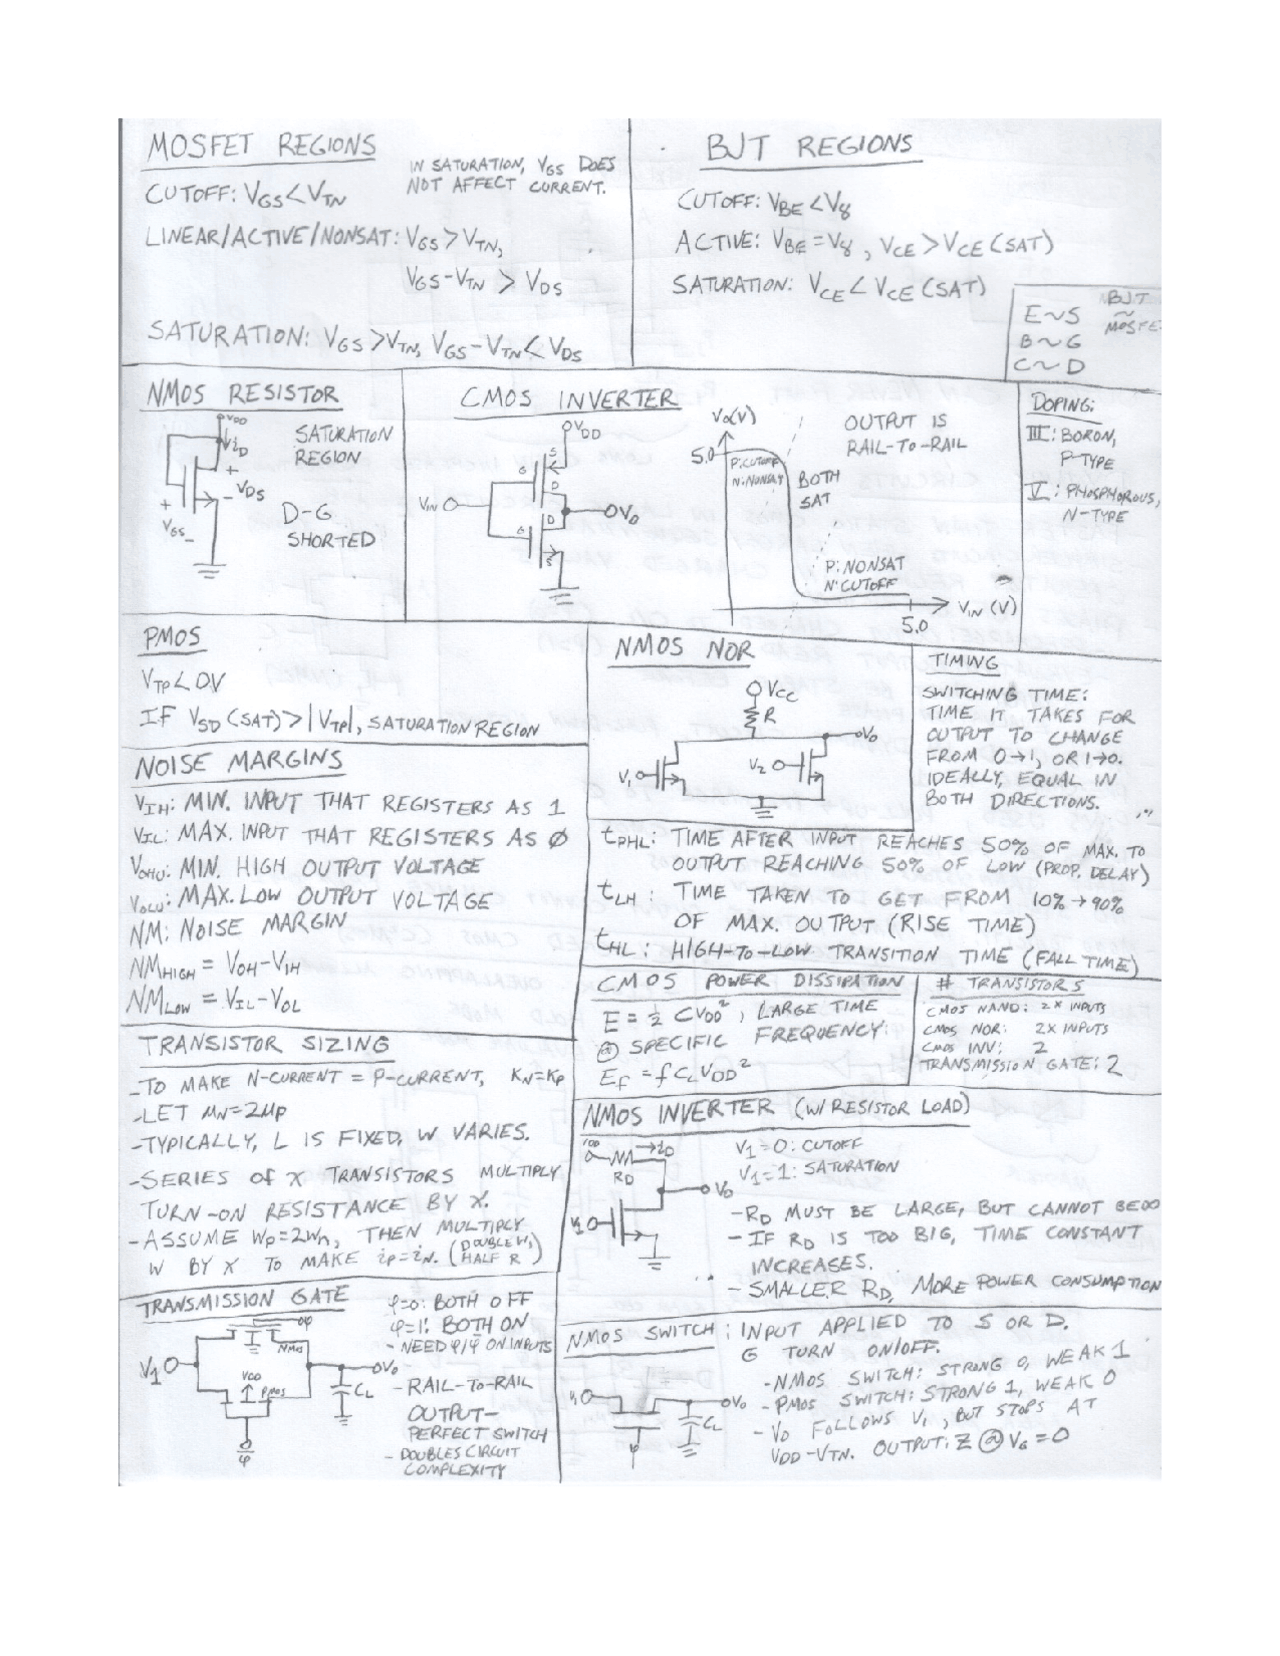 MOSFET REGIONS
IN SATURATION, VGS DOES
NOT AFFECT CURRENT.
CUTOFF: VGS<VTN
LINEAR/ACTIVE/NONSAT: VGS>VTN,
VGS-VTN > VDS
SATURATION: VGS>VTN, VGS-VTN<VDS
BJT REGIONS
CUTOFF: VBE<Vγ
ACTIVE: VBE=Vγ, VCE>VCE(SAT)
SATURATION: VCE<VCE(SAT)
BJT
~
MOSFE
E~S
B~G
C~D
NMOS RESISTOR
VDD
iD
+
- VDS
+
VGS -
SATURATION
REGION
D-G
SHORTED
CMOS INVERTER
VDD
S
G
D
VIN
VO
D
G
S
VO(V)
5.0
P:CUTOFF
N:NONSAT
BOTH
SAT
OUTPUT IS
RAIL-TO-RAIL
P:NONSAT
N:CUTOFF
VIN (V)
5.0
DOPING:
III: BORON,
P-TYPE
V: PHOSPHOROUS,
N-TYPE
PMOS
VTP<0V
IF VSD(SAT)>|VTP|, SATURATION REGION
NMOS NOR
VCC
R
VO
V1
V2
TIMING
SWITCHING TIME:
TIME IT TAKES FOR
OUTPUT TO CHANGE
FROM 0→1, OR 1→0.
IDEALLY, EQUAL IN
BOTH DIRECTIONS.
NOISE MARGINS
VIH: MIN. INPUT THAT REGISTERS AS 1
VIL: MAX. INPUT THAT REGISTERS AS Ø
VOHU: MIN. HIGH OUTPUT VOLTAGE
VOLU: MAX. LOW OUTPUT VOLTAGE
NM: NOISE MARGIN
NMHIGH = VOH-VIH
NMLOW = VIL-VOL
tPHL: TIME AFTER INPUT REACHES 50% OF MAX. TO
OUTPUT REACHING 50% OF LOW (PROP. DELAY)
tLH: TIME TAKEN TO GET FROM 10%→90%
OF MAX. OUTPUT (RISE TIME)
tHL: HIGH-TO-LOW TRANSITION TIME (FALL TIME)
CMOS POWER DISSIPATION
E=½ CVDD², LARGE TIME
@ SPECIFIC FREQUENCY:
EF=fCLVDD²
# TRANSISTORS
CMOS NAND: 2X INPUTS
CMOS NOR: 2X INPUTS
CMOS INV: 2
TRANSMISSION GATE: 2
TRANSISTOR SIZING
-TO MAKE N-CURRENT = P-CURRENT, KN=KP
-LET μN=2μP
-TYPICALLY, L IS FIXED, W VARIES.
-SERIES OF X TRANSISTORS MULTIPLY
TURN-ON RESISTANCE BY X.
-ASSUME WP=2Wn, THEN MULTIPLY
W BY X TO MAKE iP=iN. (DOUBLE W,
HALF R)
NMOS INVERTER (W/ RESISTOR LOAD)
VDD
iD
RD
VO
V1
V1=0: CUTOFF
V1=1: SATURATION
-RD MUST BE LARGE, BUT CANNOT BE ∞
-IF RD IS TOO BIG, TIME CONSTANT
INCREASES.
-SMALLER RD, MORE POWER CONSUMPTION
TRANSMISSION GATE
φ
NMOS
V1
VO
VDD
PMOS
CL
φ̅
φ=0: BOTH OFF
φ=1: BOTH ON
-NEED φ/φ̅ ON INPUTS
-RAIL-TO-RAIL
OUTPUT-
PERFECT SWITCH
-DOUBLES CIRCUIT
COMPLEXITY
NMOS SWITCH: INPUT APPLIED TO S OR D.
G TURN ON/OFF.
-NMOS SWITCH: STRONG 0, WEAK 1
-PMOS SWITCH: STRONG 1, WEAK 0
-VO FOLLOWS V1, BUT STOPS AT
VDD-VTN. OUTPUT: Z @ VG=0
V1
VO
CL
φ